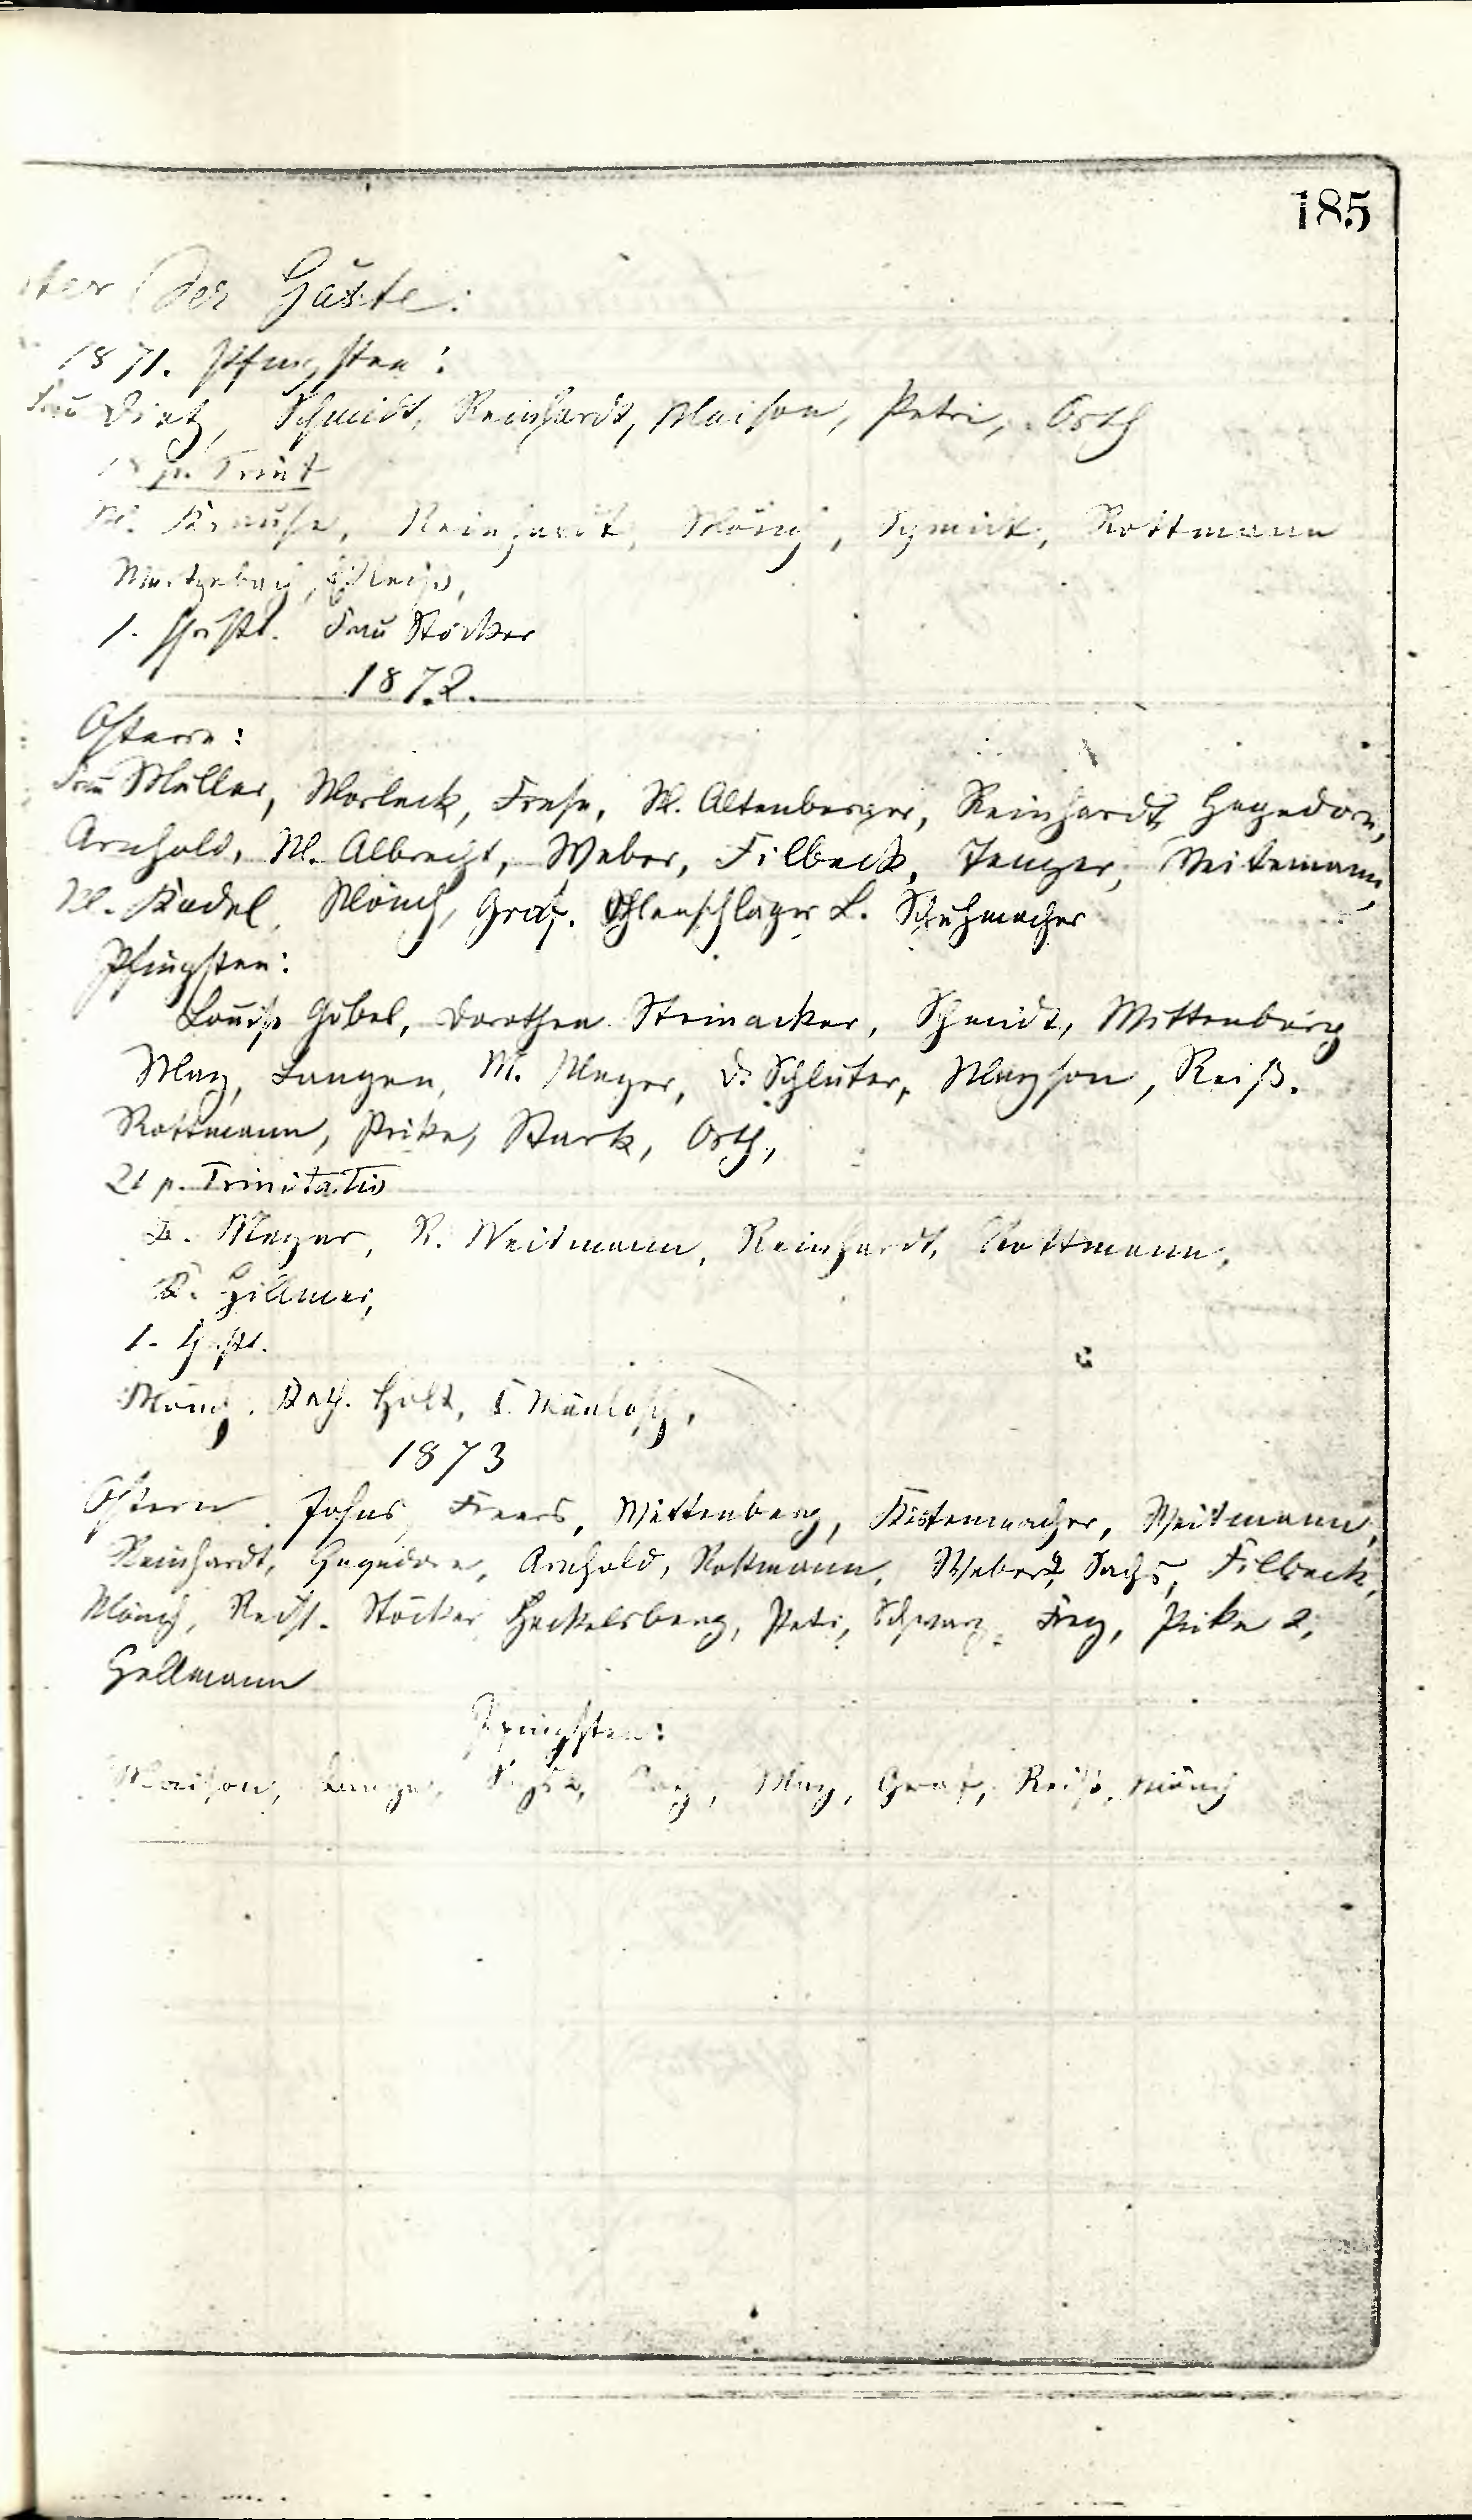 185
der Gäste:
1871. Pfingsten:
Frau Dietz, Schmidt, Reinhardt, Maison, Petri, Orth
18 p. Trinit
M. Krause, Reinhardt, Mönch, Schmidt, Rottmann
1. Christt. Frau Stöcker
1872.
Ostern:
Frau Müller, Worleck, Frese, M. Altenberger, Reinhardt, Hagedorn,
Arnhold, M. Albrecht, Weber, Filbeck, Tenger, Weitemann,
M. Kadel, Mönch, Graf. Öhlenschläger L. Schuhmacher
Pfingsten:
Louise Göbel, Dorothea Steinacker, Schmidt, Wittenburg
May, Langen, M. Meyer, D. Schluter, Mayson, Reiß.
Rottmann, Prike, Stark, Orth,
21 p. Trinitatis
L. Meyer, R. Weitmann, Reinhardt, Rottmann,
K. Hillmer,
1. Christt.
Mönch, Kath. Holt,
1873
Ostern Johns, Frers, Wittenberg, Kistenmacher, Weitmann,
Reinhardt, Hagedorn, Arnhold, Rottmann, Weber 2, Sachs, Filbeck,
Mönch, Reiß. Stöcker, Heckelsberg, Petri, Schwarz, Frey, Prike 2,
Hellmann
Pfingsten:
Maison, Lange, May, Graf, Reiß, Mönch